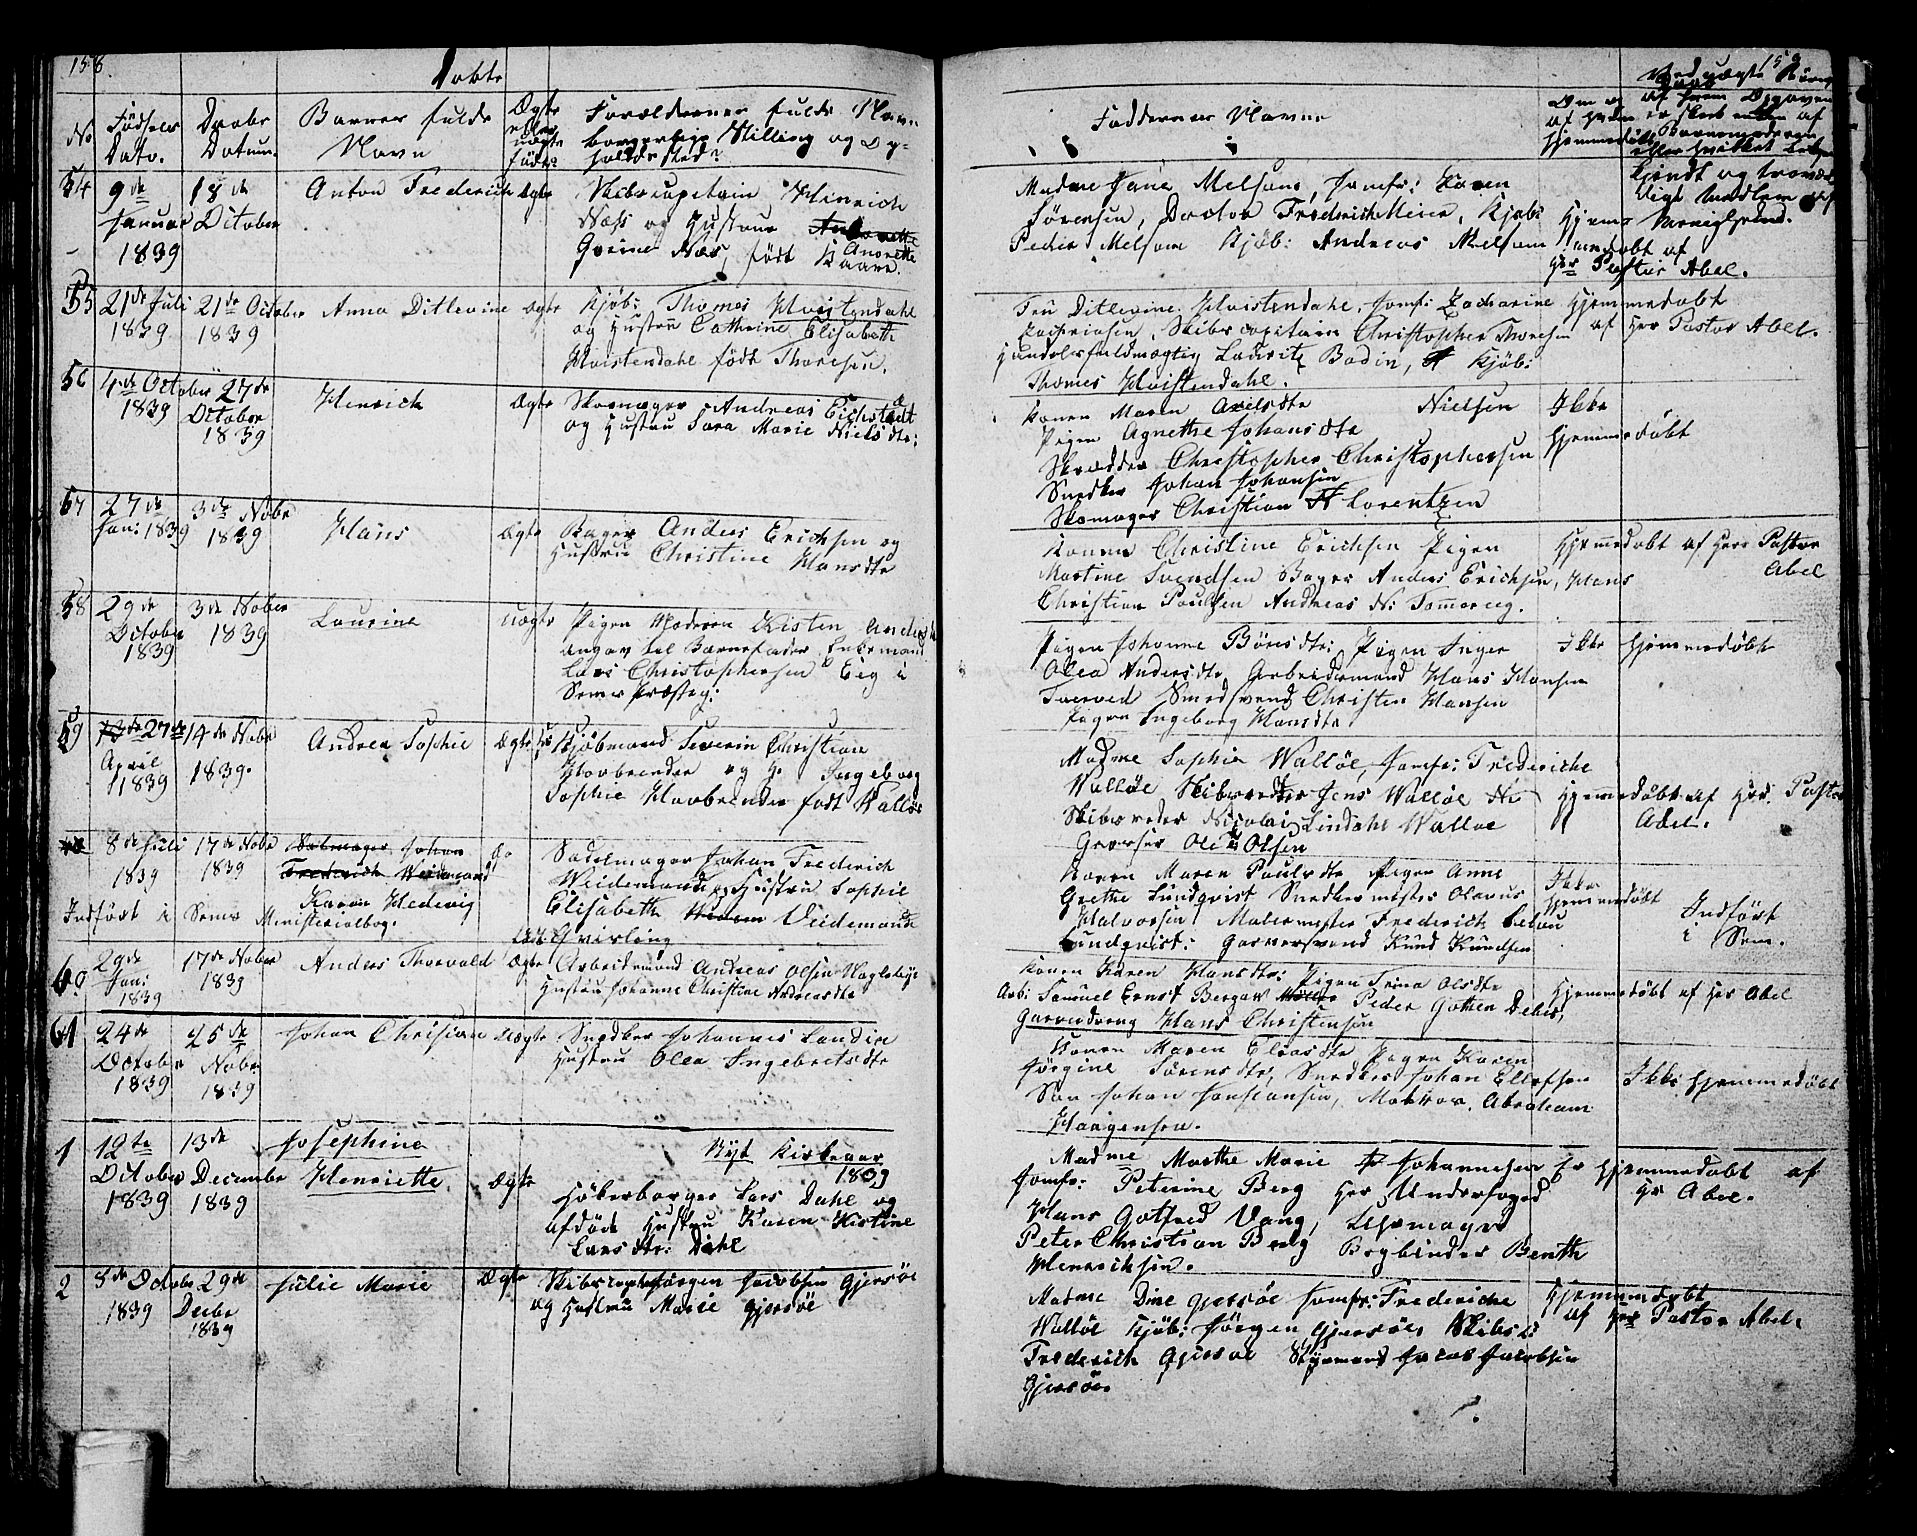 158.
Døbte
No
Fødsels Dato.
Daabs Datum.
Barnes fulde Navn
Ægte eller uægte født?
Forældernes fulde Navn borgerlige Stilling og Op-
holdssted?
54
9de Januar 1839
18de October
Anton Frederich
Ægte
Skibscapitain Hinrich
Næss og Hustrue
Gurine Næs, født Anorette
Kaare.
55
21de Juli 1839
21de October 1839
Anna Ditlevine
Ægte
Kjøb: Thomes Hvistendahl
og Hustru Cathrine Elisabeth
Hvistendahl født Thoresen.
56
4de October 1839
27de October 1839
Henrich
Ægte
Skomager Andreas Eichstædt
og Hustru Sara Marie Nielsdtr:
57
27de Jan: 1839
3de Nobr 1839
Hans
Ægte
Bager Anders Erichsen og
Hustru Christine Hansdtr
58
29de October 1839
3de Nober 1839
Laurine
uægte
Pigen Moderen Kisten Anders
angav til Barnefader Enkemand
Lars Christophersen Eig i
Sems Præsteg:
59
27de April 1839
14de Nobr 1839.
Andrea Sophie
Ægte
Kjøbmand Severin Christian
Hovbrender og H. Ingeborg
Sophie Hovbrender født Walløe
8de Juli 1839
17de Nobr 1839
Salmager Johan
Frederich Weidemand
Karen Hedevig
Do
Sadelmager Johan Frederich
Weidemand og Hustru Sophie
Elisabeth Veidemand
født Qvisling
Indført i Sems Ministerialbog.
60
29de Jan: 1839
17de Nober 1839
Anders Thorvald
Ægte
Arbeidsmand Andreas Olsen Hagleby
Hustru Johanne Christine Andreasdtr
61
24de October 1839
25de Nobr 1839
Johan Chrisian
Uægte
Snedker Johannes Landin
Hustru Olea Ingebretsdtr
Nyt Kirkeaar
1839
1
12te October 1839
13de December 1839
Josephine
Henriette
Ægte
Høkerborger Lars Dahl og
afdøde Hustru Karen Kistine
Larsdtr: Dahl
2
5de Octobr 1839
29de Decbr 1839
Julie Marie
Ægte
Skibscapt Jørgen Jacobsen Gjersøe
og Hustru Marie Gjersøe
159
Faddernes Navne
Om og af hvem Hjemmedøbt
Ved uægte Børn
af hvem Opgaven
er skeet enten af
Barnemoderen
eller hvilket bekjendt og troværdigt Medlem af
Menigheden.
Madme Jane Melsom, Jomfr: Karen
Sørensen, Doctor Frederich Meier, Kjøb:
Peder Melsom Kjøb: Andreas Melsom
Hjemmedøbt af
Hr Pastor Abel.
Fru Ditlevine Hvistendahl, Jomfr: Zacharine
Zachriasen, Skibscapitain Christopher Thoresen
Handelsfuldmægtig Lauritz Bodin, Kjøb:
Thomes Hvistendahl.
Hjemmedøbt
af Her Pastor Abel.
Konen Maren Axelsdtr Nielsen
Pigen Agnethe Johansdtr
Skredder Christopher Christophersen
Snedker Johan Johansen
Skomager Christian Lorentzen
Ikke
Hjemmedøbt
Konen Christine Erichsen Pigen
Martine Svendsen Bager Anders Erichsen, Hans
Christian Poulsen Andreas N: Tommereg.
Hjemmedøbt af Herr Pastor
Abel
Pigen Johanne Børsdtr; Pigen Inger
Olea Andersdtr Arbeidsmand Hans Hansen
Tverved Smedsvend Christen Hansen
Pigen Ingeborg Hansdtr
Ikke Hjemmedøbt
Madme Sophie Walløe, Jomfr: Frederiche
Walløe Skibsreder Jens Walløe
Skibsreder Nicolai Lindahl Walløe
Garver Ole Olsen
Hjemmedøbt af Her. Pastor
Abel.
Konen Maren Paulsdtr Pigen Anne
Grethe Lundqvist Snedkermester Olavus
Halvorsen Malermester Frederich
Lundqvist: Garversvend Knud Knudsen
Ikke
Hjemmedøbt
Indført
i Sem.
Konen Karen Hansdtr: Pigen Trina Olsdtr
Arb: Samuel Ernst Bergan Peder Gothen Dehs,
Garverdreng Hans Christensen
Hjemmedøbt af Her Abel
Konen Maren Eliasdtr Pigen Karen
Jørgine Sørensdtr, Snedker Johan Ellefsen
Søn Johan Jonstansen, Matros. Abraham
Haagensen.
Ikke Hjemmedøbt
Madme Marthe Marie Johannesen
Jomfr: Peterine Berg Her Underfoged
Hans Gotfred Vang,
Peter Christian Berg Bogbinder Benth
Henrichsen.
Er Hjemmedøbt af
Hr Abel.
Madme Dine Gjersøe Jomfr: Frederiche
Walløe Kjøb: Jørgen Gjersøe, Skibs:
Frederich Gjersøe Styrmand Jacob Jacobsen
Gjersøe.
Hjemmedøbt
af Her Pastor Abel.